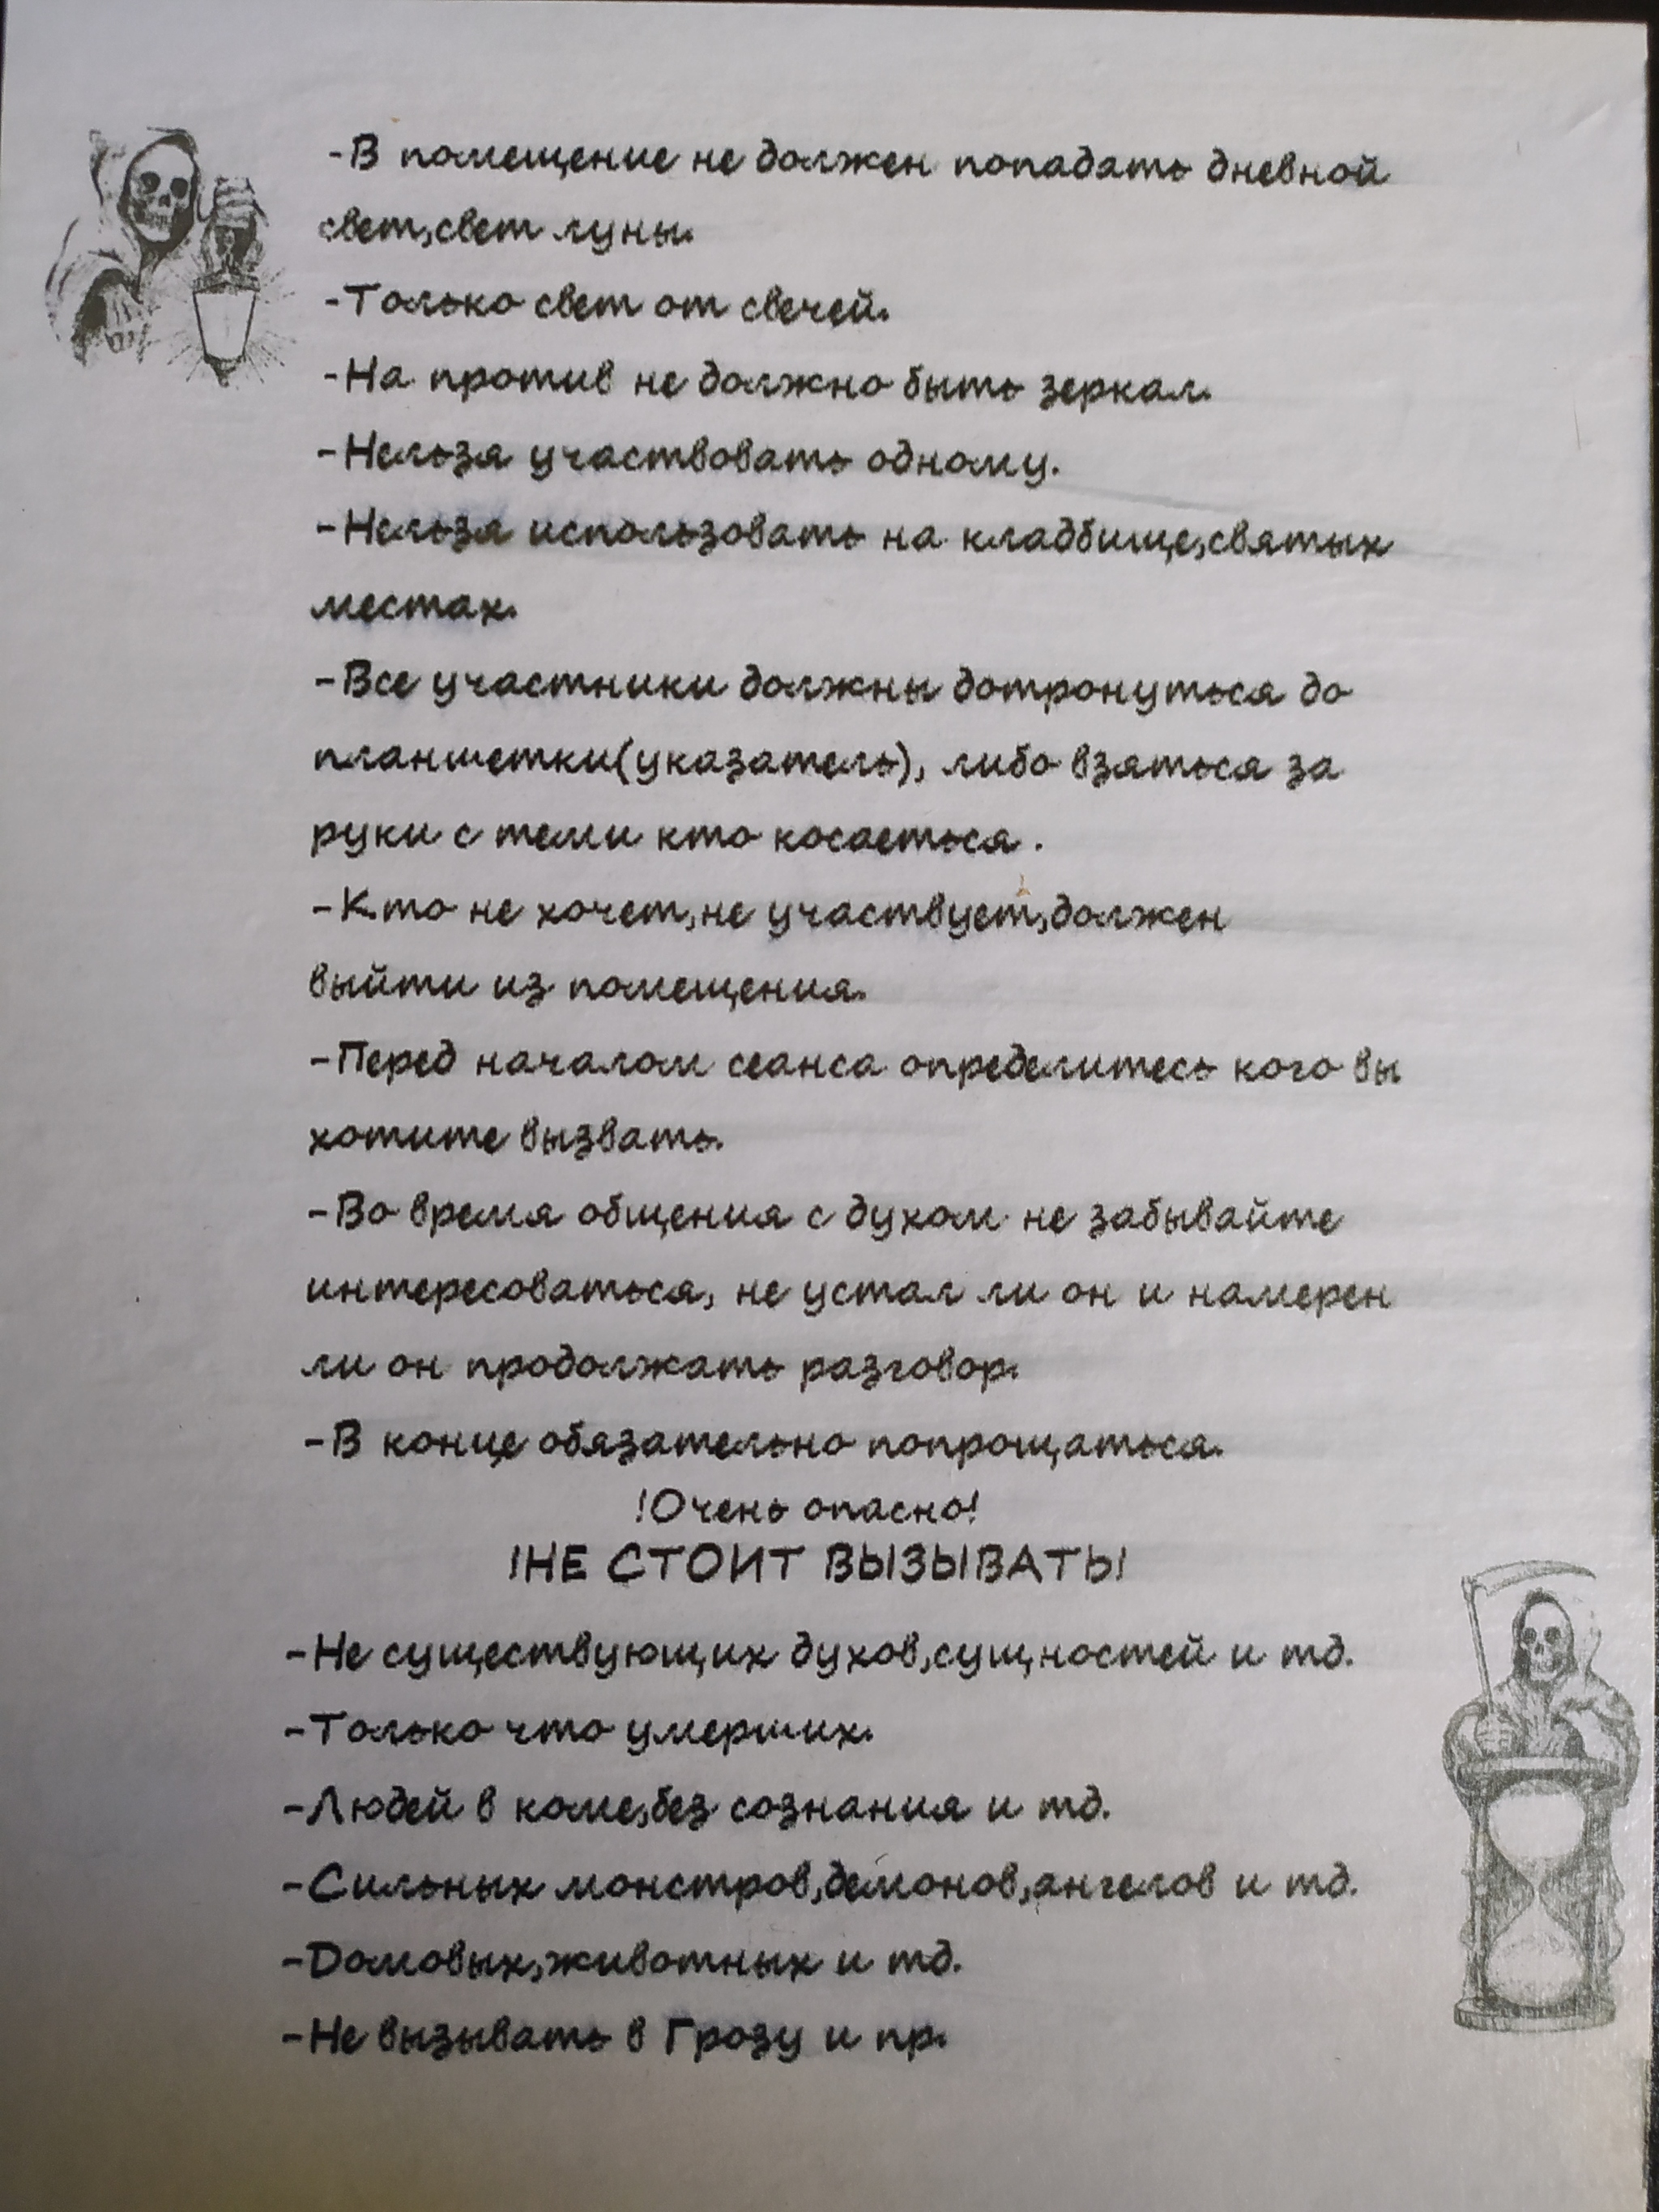 -В помещение не должен попадать дневной
свет,свет луны.
-Только свет от свечей.
-На против не должно быть зеркал.
-Нельзя участвовать одному.
-Нельзя использовать на кладбище,святых
местах.
-Все участники должны дотронуться до
планшетки(указатель), либо взяться за
руки с теми кто косаеться .
-Кто не хочет,не участвует,должен
выйти из помещения.
-Перед началом сеанса определитесь кого вы
хотите вызвать.
-Во время общения с духом не забывайте
интересоваться, не устал ли он и намерен
ли он продолжать разговор.
-В конце обязательно попрощаться.
!Очень опасно!
!НЕ СТОИТ ВЫЗЫВАТЬ!
-Не существующих духов,сущностей и тд.
-Только что умерших.
-Людей в коме,без сознания и тд.
-Сильных монстров,демонов,ангелов и тд.
-Домовых,животных и тд.
-Не вызывать в Грозу и пр.